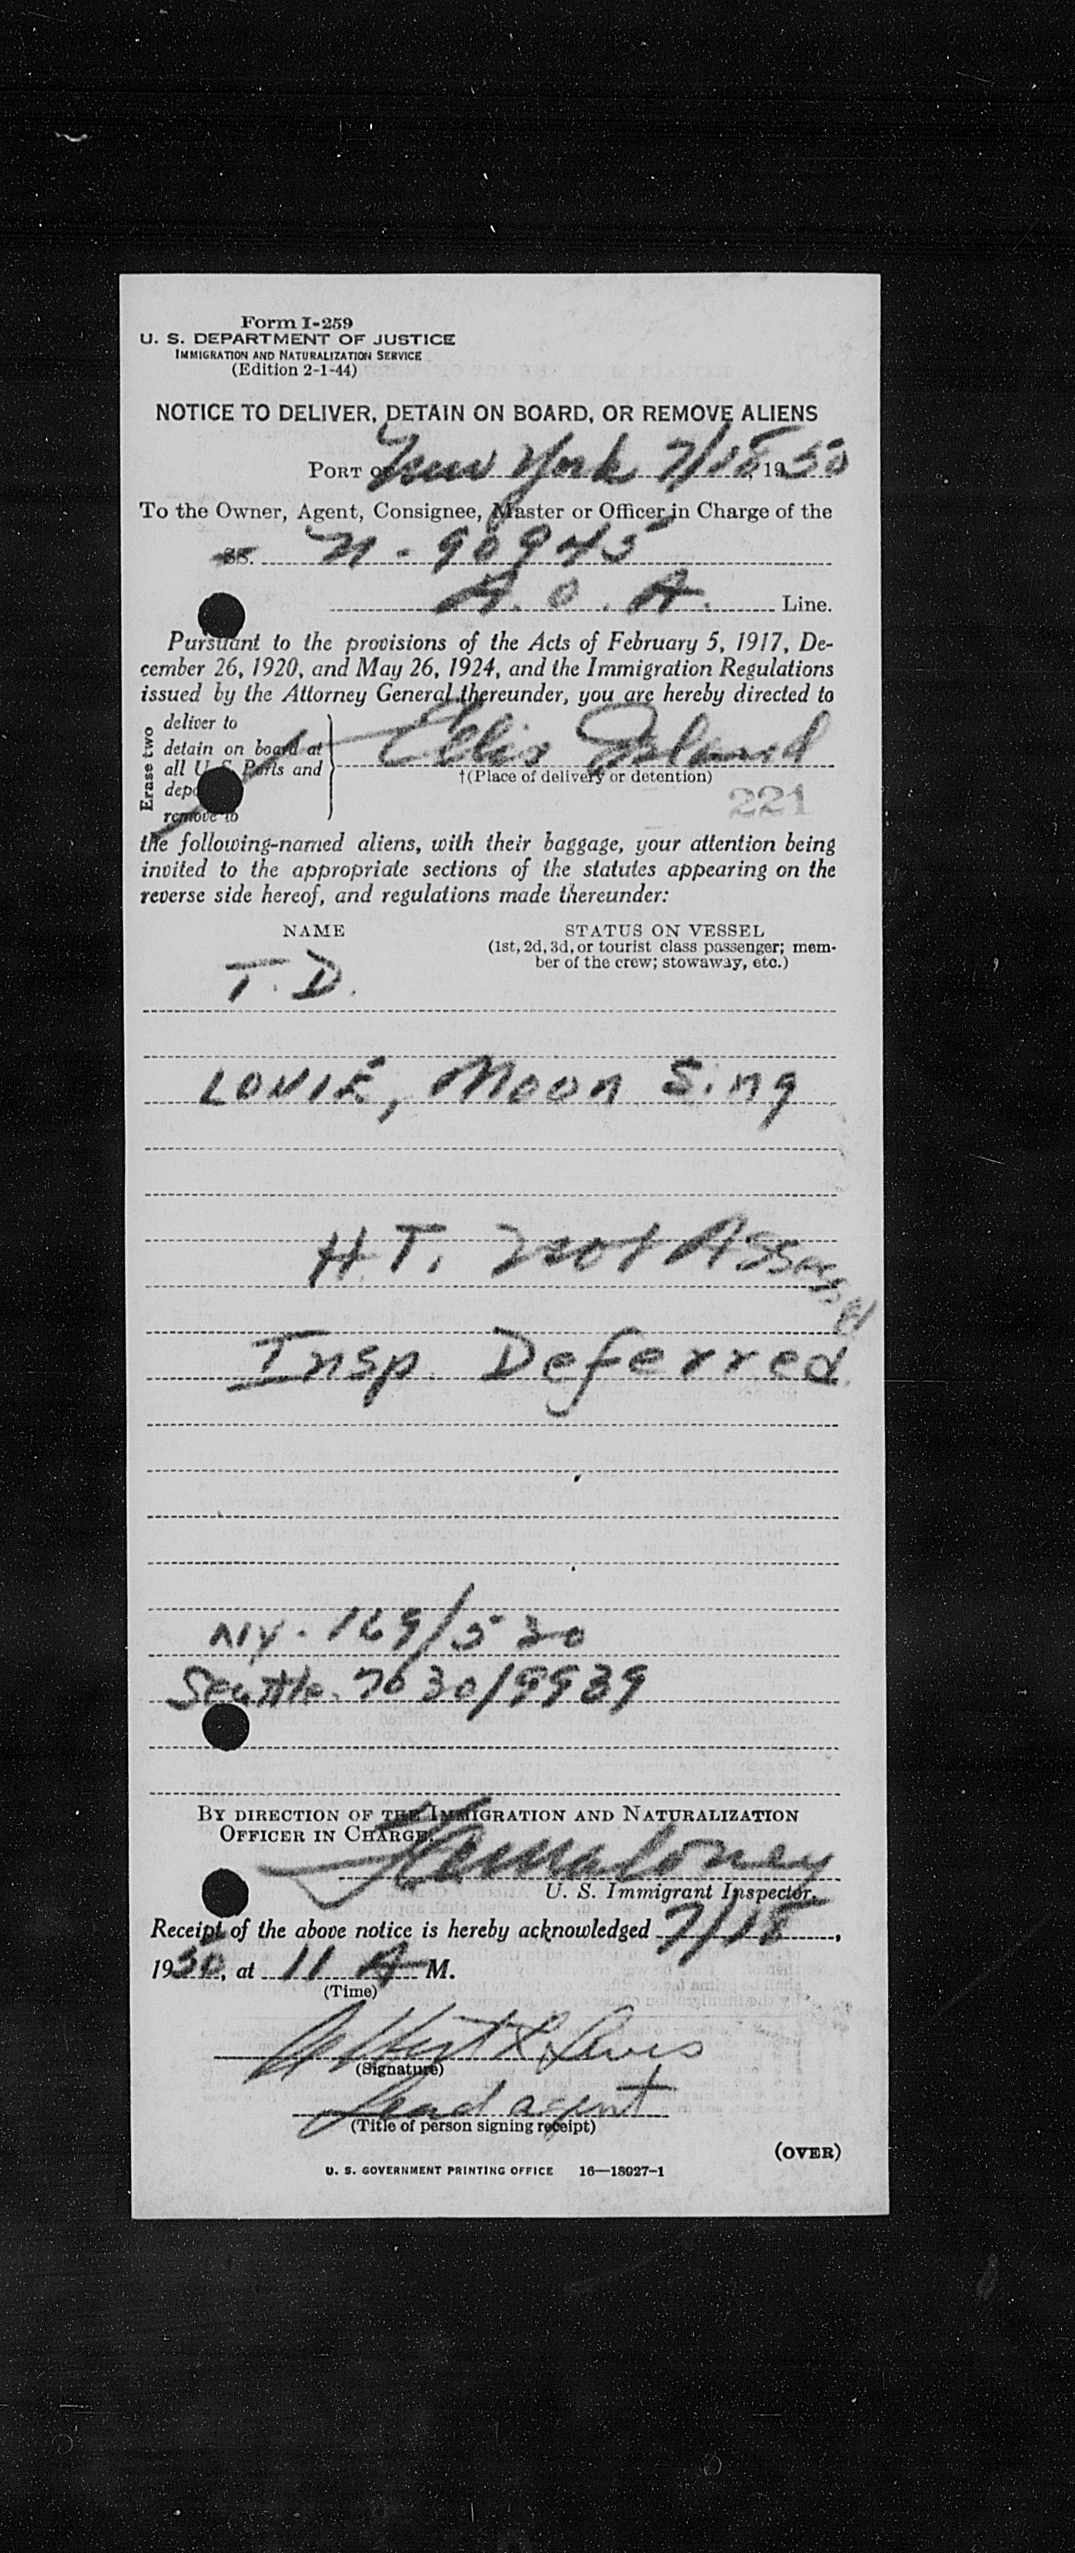 Form I-259
U. S. DEPARTMENT OF JUSTICE
IMMIGRATION AND NATURALIZATION SERVICE
(Edition 2-1-44)
NOTICE TO DELIVER, DETAIN ON BOARD, OR REMOVE ALIENS
PORT OF New York 7/18, 1950
To the Owner, Agent, Consignee, Master or Officer in Charge of the
SS. N-90945
A.O.A. Line.
Pursuant to the provisions of the Acts of February 5, 1917, De-
cember 26, 1920, and May 26, 1924, and the Immigration Regulations
issued by the Attorney General thereunder, you are hereby directed to
Erase two
deliver to
detain on board at
all U S Ports and
remove to
Ellis Island
†(Place of delivery or detention)
221
the following-named aliens, with their baggage, your attention being
invited to the appropriate sections of the statutes appearing on the
reverse side hereof, and regulations made thereunder:
NAME STATUS ON VESSEL
(1st, 2d, 3d, or tourist class passenger; mem-
ber of the crew; stowaway, etc.)
T. D.
LOUIE, Moon Sing
H.T. Not Assessed
Insp. Deferred
NY. 169/530
Seattle. 7030/9939
BY DIRECTION OF THE IMMIGRATION AND NATURALIZATION
OFFICER IN CHARGE.
Maloney
U. S. Immigrant Inspector.
Receipt of the above notice is hereby acknowledged 7/18,
1950, at 11 A M.
(Time)
Albert
(Signature)
agent
(Title of person signing receipt)
(OVER)
U. S. GOVERNMENT PRINTING OFFICE 16—18027-1